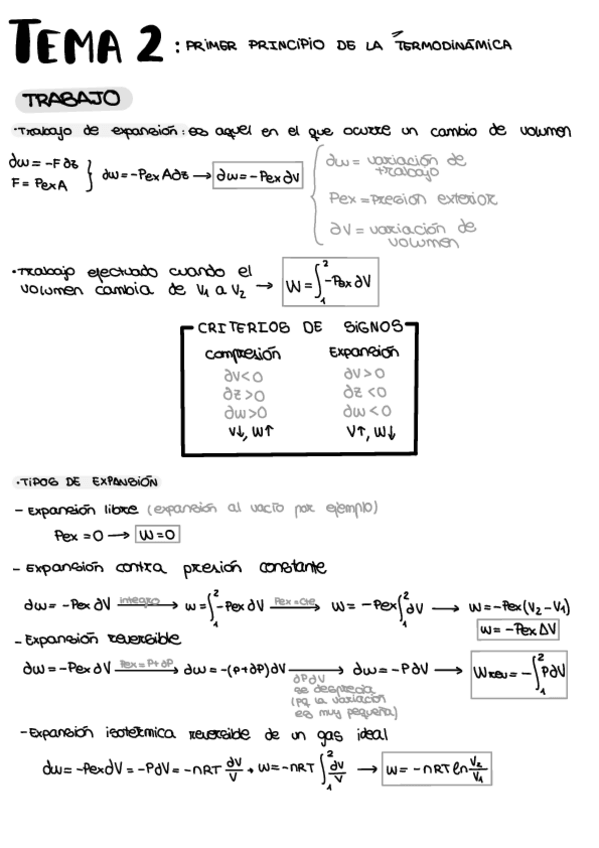 TEMA 2 : PRIMER PRINCIPIO DE LA TERMODINÁMICA
TRABAJO
·Trabajo de expansión: es aquel en el que ocurre un cambio de volumen
∂w = -F∂z
F = Pex A
} ∂w = -Pex A∂z → ∂w = -Pex ∂V
∂w = variación de
trabajo
Pex = Presión exterior
∂V = variación de
volumen
·Trabajo efectuado cuando el
volumen cambia de V₁ a V₂ → W = ∫₁² -Pex ∂V
CRITERIOS DE SIGNOS
Compresión Expansión
∂V<0 ∂V>0
∂z>0 ∂z<0
∂w>0 ∂w<0
V↓, W↑ V↑, W↓
·TIPOS DE EXPANSIÓN
- Expansión libre (expansión al vacío por ejemplo)
Pex = 0 → W = 0
- Expansión contra presión constante
∂w = -Pex ∂V integro → w = ∫₁² -Pex ∂V Pex = cte → W = -Pex ∫₁² ∂V → W = -Pex (V₂ - V₁)
W = -Pex ΔV
- Expansión reversible
∂w = -Pex ∂V Pex = P+∂P → ∂w = -(P+∂P)∂V → ∂w = -P∂V → Wrev = -∫₁² P∂V
∂P∂V
se desprecia
(pq la variación
es muy pequeña)
- Expansión isotérmica reversible de un gas ideal
∂w = -Pex∂V = -P∂V = -nRT ∂V/V → W = -nRT ∫₁² ∂V/V → W = -nRT ln V₂/V₁